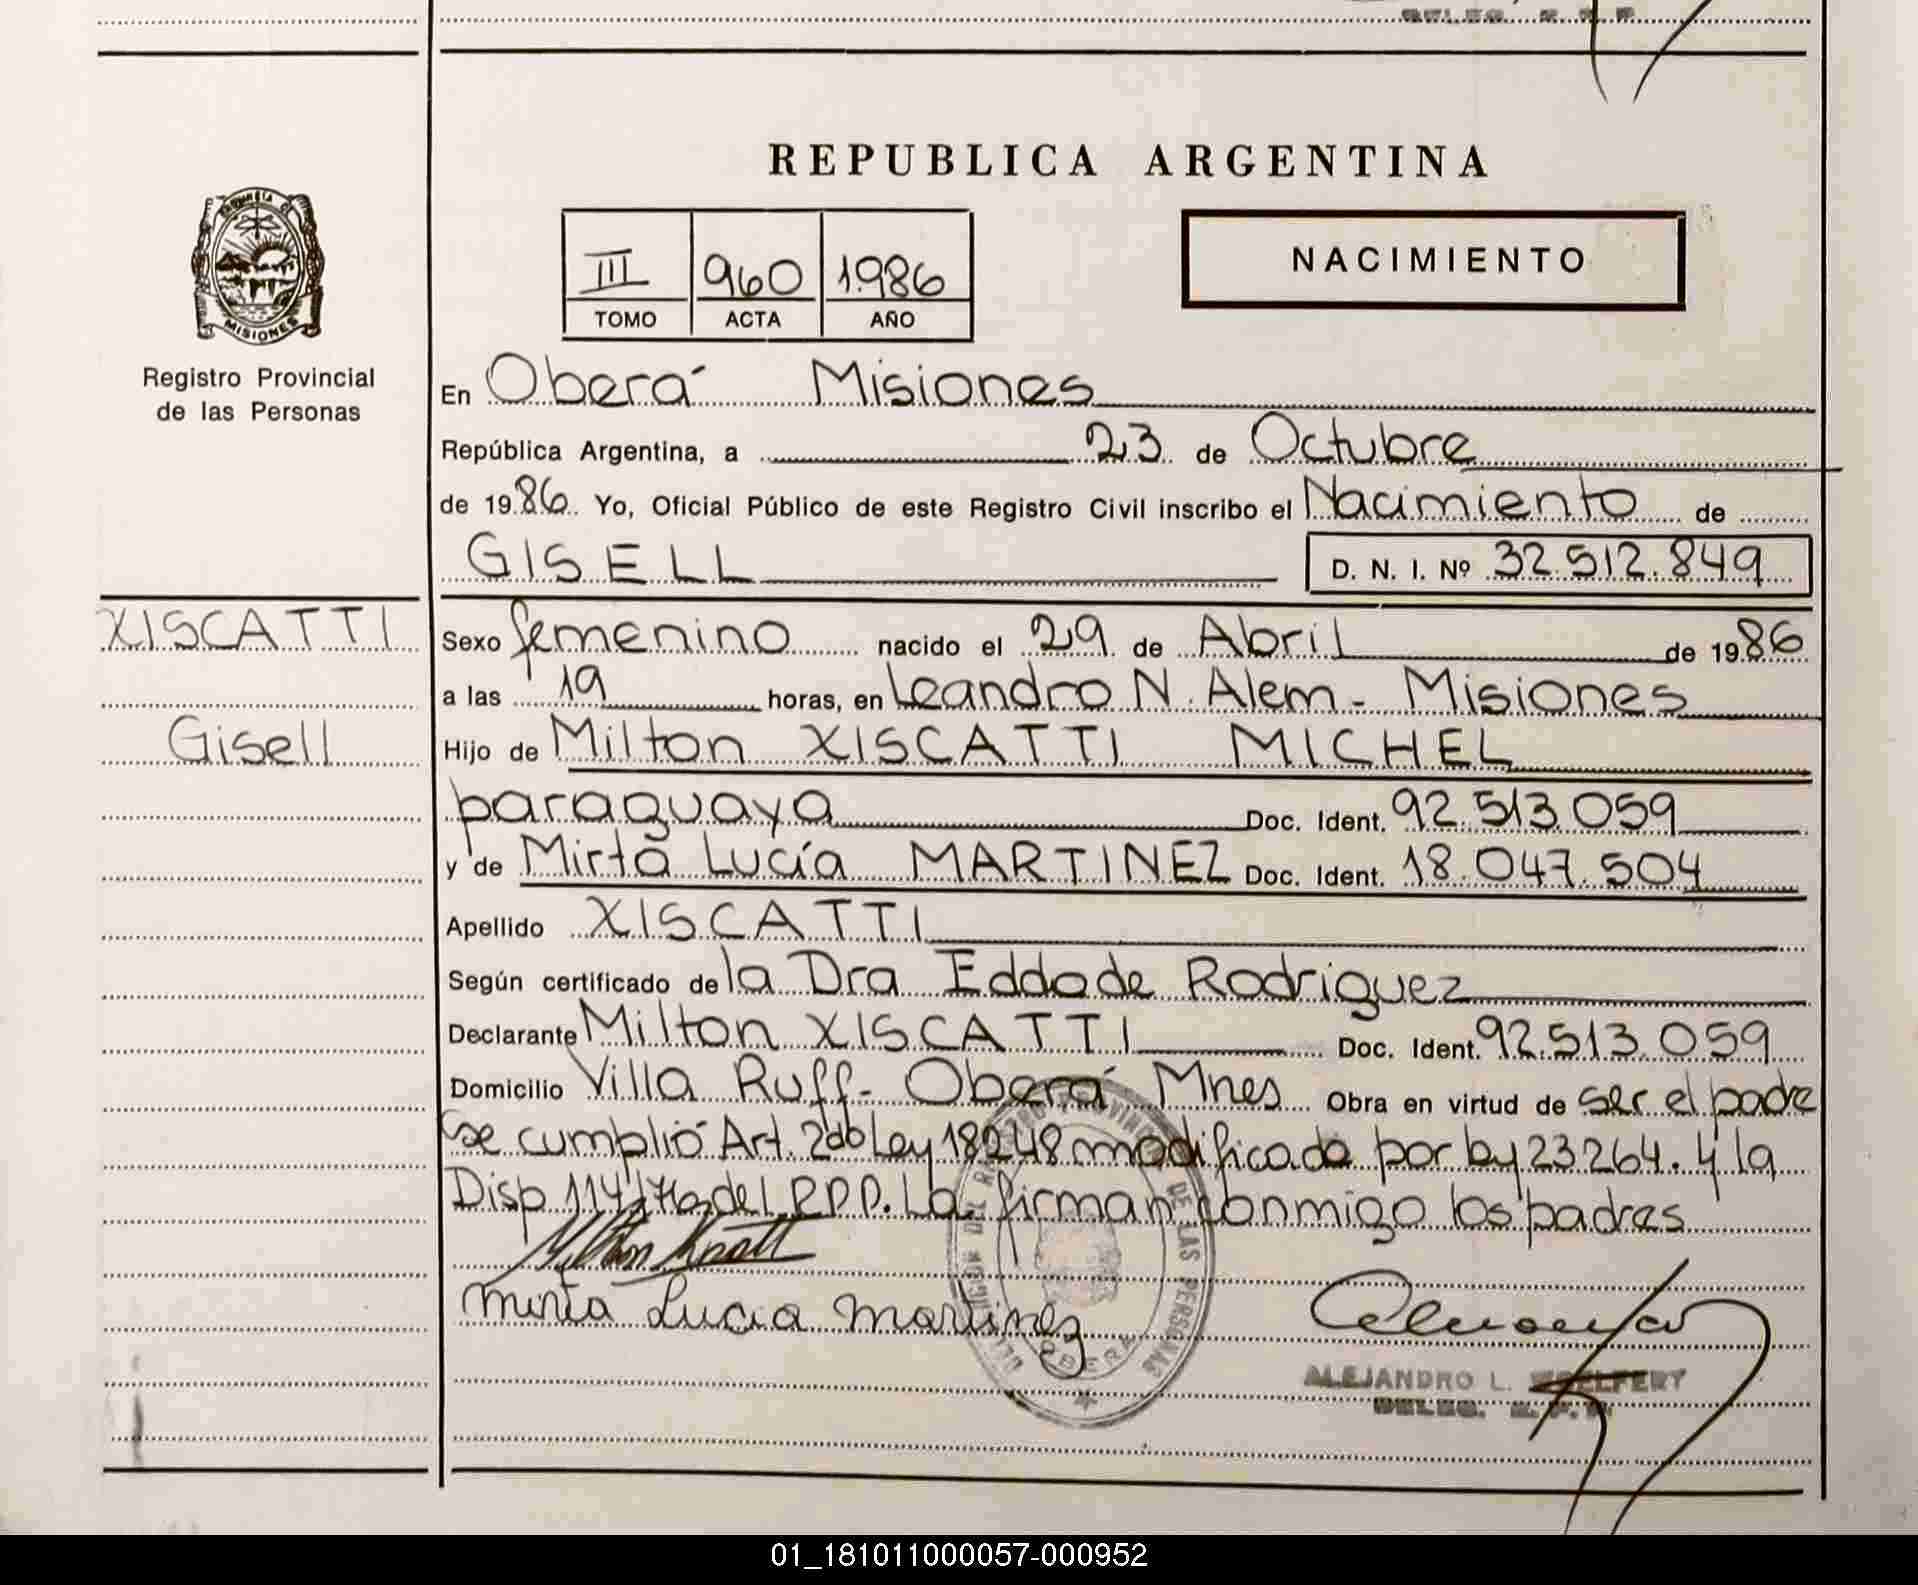 REPUBLICA ARGENTINA
PROVINCIA DE
MISIONES
Registro Provincial
de las Personas
III 960 1986
TOMO ACTA AÑO
NACIMIENTO
En Oberá Misiones
República Argentina, a 23 de Octubre
de 1986. Yo, Oficial Público de este Registro Civil inscribo el Nacimiento de
GISELL D. N. I. Nº 32.512.849
XISCATTI
Gisell
Sexo femenino nacido el 29 de Abril de 1986
a las 19 horas, en Leandro N. Alem - Misiones
Hijo de Milton XISCATTI MICHEL
paraguaya Doc. Ident. 92.513.059
y de Mirta Lucía MARTINEZ Doc. Ident. 18.047.504
Apellido XISCATTI
Según certificado de la Dra Eddade Rodriguez
Declarante Milton XISCATTI Doc. Ident. 92.513.059
Domicilio Villa Ruff - Oberá Mnes Obra en virtud de ser el padre
se cumplió Art. 2do Ley 18248 modificada por ley 23264. y la
Disp. 114/76 del R.P.P. La firman conmigo los padres
Mirta Lucia Martinez
DE LAS PERSONAS
OBERA
ALEJANDRO L. WOELFERT
DELEG. R. P. P.
01_181011000057-000952